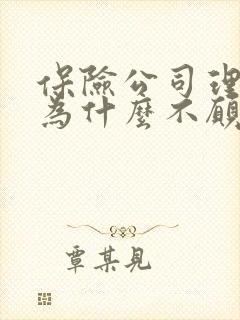 保險公司理
為什麼不願
覃某見